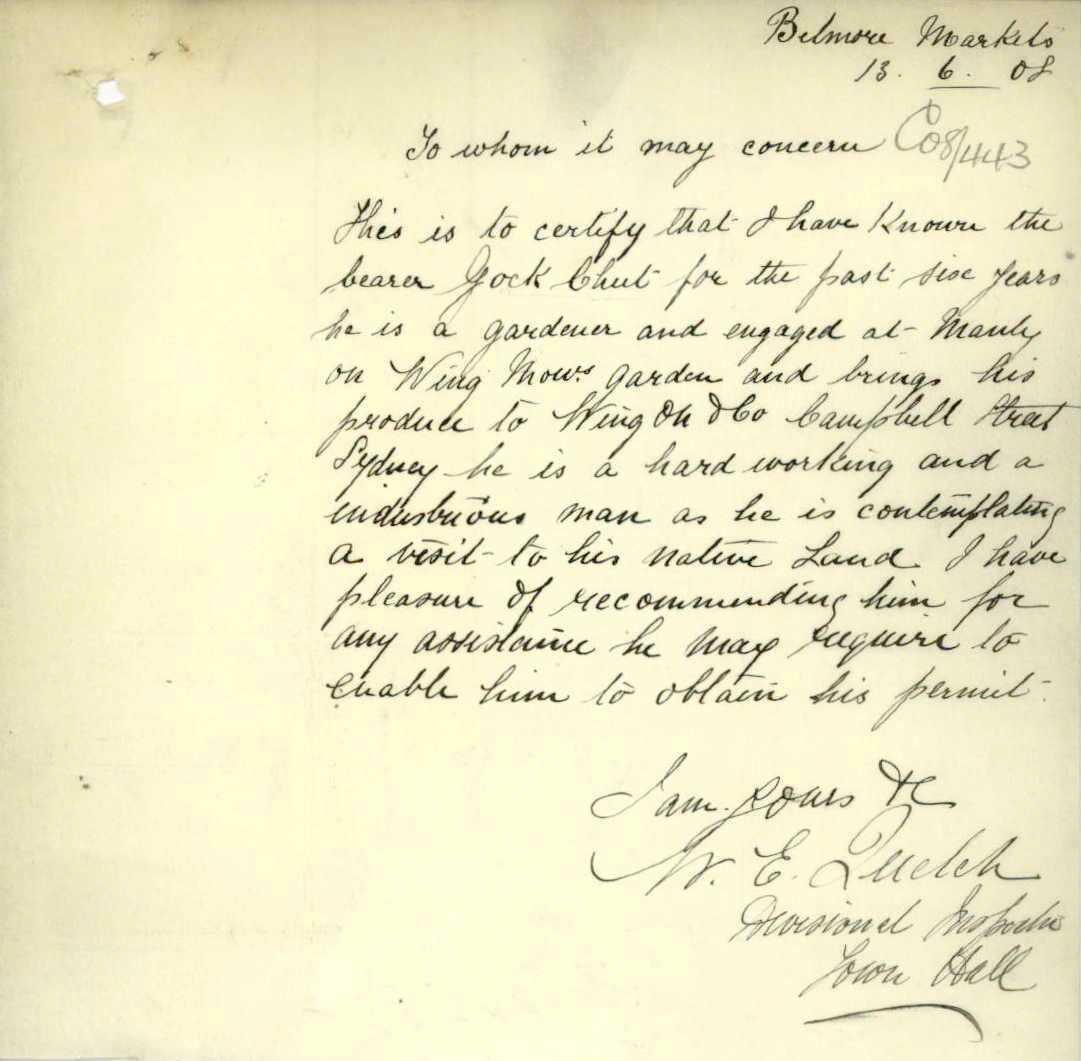 Belmore Markets
13. 6. 08
To whom it may concern C08/443
This is to certify that I have known the
bearer Gock Chut for the past six years
he is a gardener and engaged at Manly
on Wing Mows garden and brings his
produce to Wing On & Co Campbell Street
Sydney he is a hard working and a
industrious man as he is contemplating
a visit to his native Land I have
pleasure of recommending him for
any assistance he may require to
enable him to obtain his permit.
I am yours &c
W. E. Quelch
Divisional Inspector
Town Hall